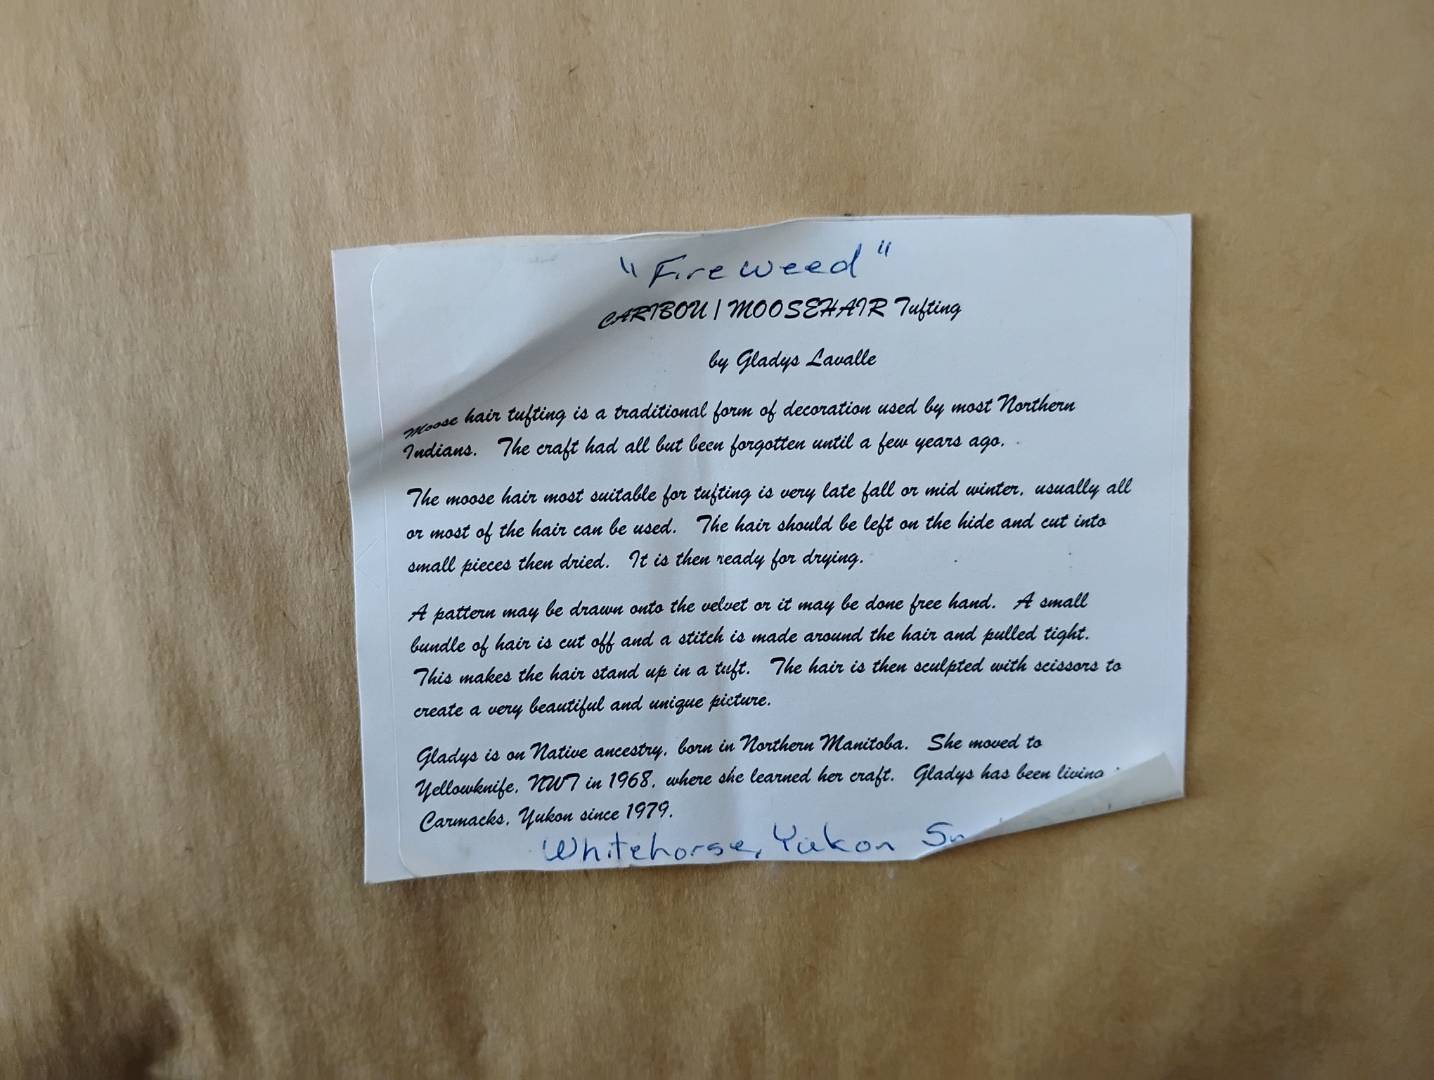 "Fireweed"
CARIBOU | MOOSEHAIR Tufting
by Gladys Lavalle
Moose hair tufting is a traditional form of decoration used by most Northern
Indians. The craft had all but been forgotten until a few years ago.
The moose hair most suitable for tufting is very late fall or mid winter, usually all
or most of the hair can be used. The hair should be left on the hide and cut into
small pieces then dried. It is then ready for drying.
A pattern may be drawn onto the velvet or it may be done free hand. A small
bundle of hair is cut off and a stitch is made around the hair and pulled tight.
This makes the hair stand up in a tuft. The hair is then sculpted with scissors to
create a very beautiful and unique picture.
Gladys is on Native ancestry, born in Northern Manitoba. She moved to
Yellowknife, NWT in 1968, where she learned her craft. Gladys has been living
Carmacks, Yukon since 1979.
Whitehorse, Yukon